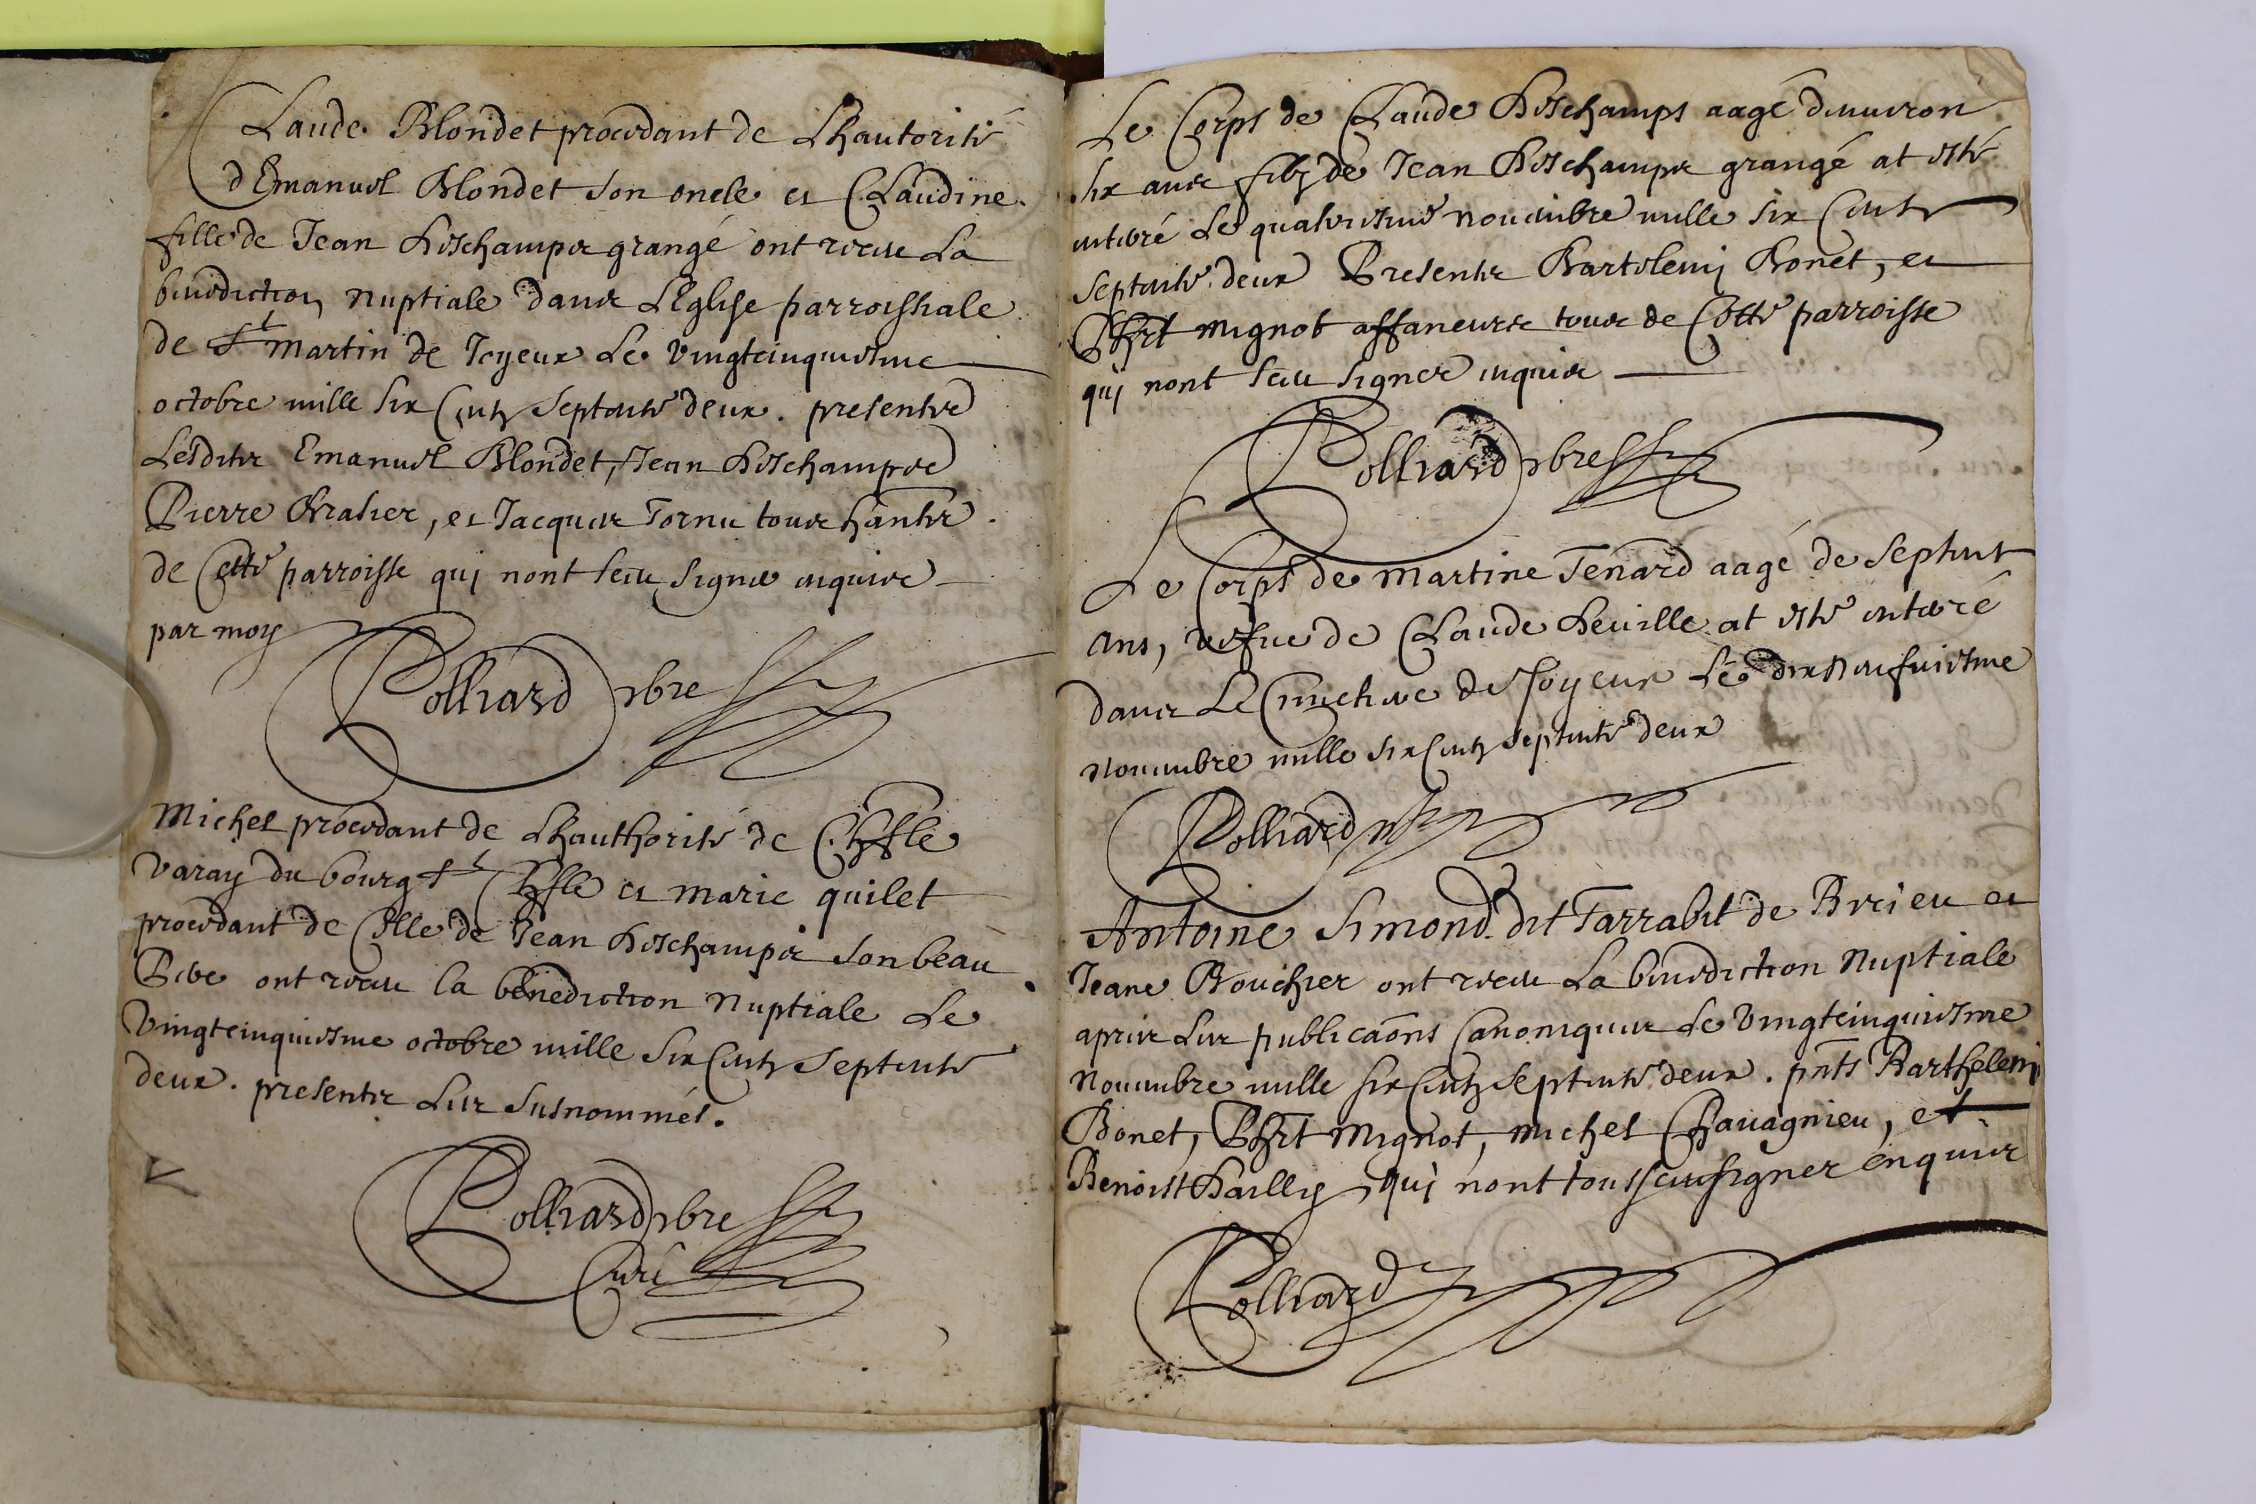 Claude Blondet procedant de Lhautorité
d'Emanuel Blondet son oncle et Claudine
fille de Jean Deschamps grangé ont receu La
benediction nuptiale dans L'Eglise parroissiale
de St Martin de Joyeux Le vingtcinquiesme
octobre mille six Centz septente deux. presents
Lesdits Emanuel Blondet, Jean Deschamps
Pierre et Jacques Tornu tous hānts
de Cette parroisse qui nont sceu signer enquis
par moy
Polliard pbre
Michel procedant de Lhauthorité de Chfle
Varay du bourg St Chfle et Marie quilet
procedant de Celle de Jean Deschamps son beau
Pere ont receu la benediction Nuptiale Le
Vingtcinquiesme octobre mille six Centz septente
deux. presents Les susnommés.
Polliard pbre
Curé
Le Corps de Claude Deschamps aagé denviron
six ans filz de Jean Deschamps grangé at esté
enterré Le quatriesme novembre mille six Cents
septente deux Presents Bartelemy Bonet, et
Phbt Mignot affaneurs tous de Cette parroisse
qui nont sceu signer enquis
Polliard pbre
Le Corps de Martine Tenard aagé de septent
ans, vefue de Claude Deville at esté enterré
dans Le Cimetiere de Joyeux Le dix neufuiesme
Nouembre mille six Centz septente deux
Polliard
Antoine Simond dit Tarrabet de Brieu et
Jeane Bouchier ont receu La benediction Nuptiale
apres Les publicaōns Canoniques Le Vingtcinquiesme
Nouembre mille six Centz septente deux. pnts Barthelemi
Bonet, Phbt Mignot, Michel Chavagnieu, et
Benoist Dailly, qui nont tous sceu signer enquis
Polliard